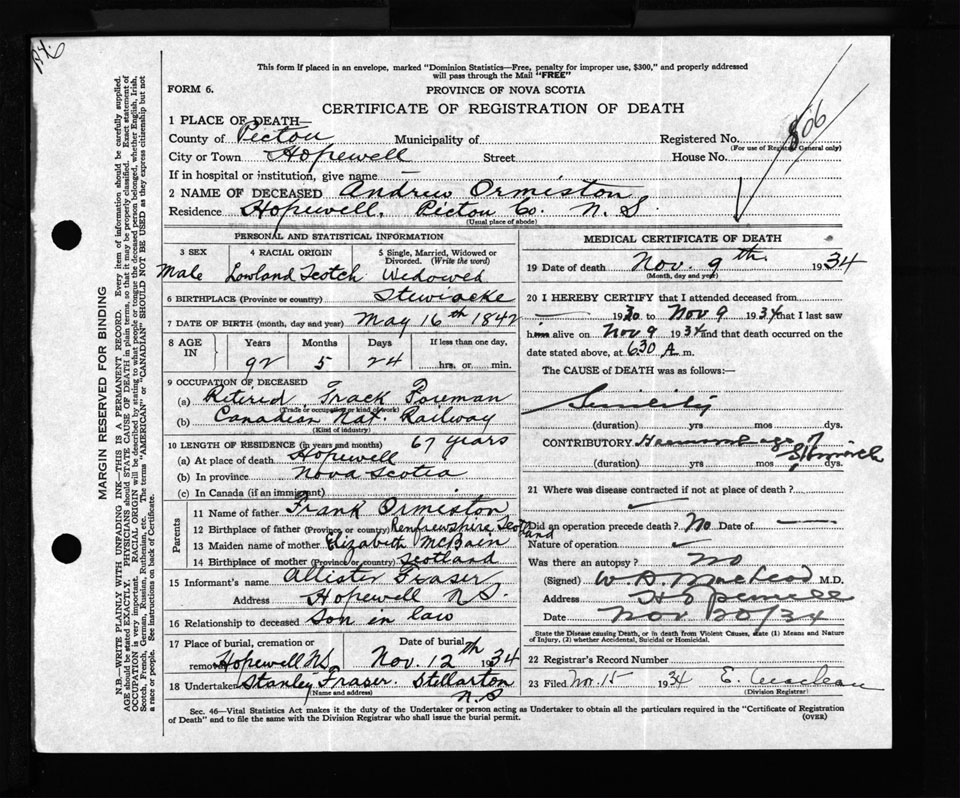 This form if placed in an envelope, marked "Dominion Statistics—Free, penalty for improper use, $300," and properly addressed
will pass through the Mail "FREE"
FORM 6.
PROVINCE OF NOVA SCOTIA
CERTIFICATE OF REGISTRATION OF DEATH
1 PLACE OF DEATH—
County of Pictou Municipality of Registered No. 806
(For use of Registrar General only)
City or Town Hopewell Street House No.
If in hospital or institution, give name —
2 NAME OF DECEASED Andrew Ormiston
Residence Hopewell, Pictou Co. N. S.
(Usual place of abode)
PERSONAL AND STATISTICAL INFORMATION
3 SEX 4 RACIAL ORIGIN 5 Single, Married, Widowed or Divorced. (Write the word)
Male Lowland Scotch Widowed
6 BIRTHPLACE (Province or country) Stewiacke
7 DATE OF BIRTH (month, day and year) May 16th 1842
8 AGE IN Years Months Days If less than one day,
92 5 24 hrs. or min.
9 OCCUPATION OF DECEASED
(a) Retired Track Foreman
(Trade or occupation or kind of work)
(b) Canadian Nat. Railway
(Kind of industry)
10 LENGTH OF RESIDENCE (in years and months) 67 years
(a) At place of death Hopewell
(b) In province Nova Scotia
(c) In Canada (if an immigrant)
Parents
11 Name of father Frank Ormiston
12 Birthplace of father (Province or country) Renfrewshire Scotland
13 Maiden name of mother Elizabeth McBain
14 Birthplace of mother (Province or country) Scotland
15 Informant's name Allister Fraser
Address Hopewell N.S.
16 Relationship to deceased Son in law
17 Place of burial, cremation or removal Hopewell N.S. Date of burial Nov. 12th 1934
18 Undertaker Stanley Fraser. Stellarton N.S
(Name and address)
MEDICAL CERTIFICATE OF DEATH
19 Date of death Nov. 9th 1934
(Month, day and year)
20 I HEREBY CERTIFY that I attended deceased from
— 1930 to Nov 9 1934 that I last saw
him alive on Nov 9 1934 and that death occurred on
date stated above, at 6.30 A. m.
The CAUSE of DEATH was as follows:—
Senility
(duration) yrs mos dys.
CONTRIBUTORY Haemorrhage of Stomach
(duration) yrs mos dys.
21 Where was disease contracted if not at place of death?
Did an operation precede death? No Date of —
Nature of operation
Was there an autopsy? No
(Signed) W. A. MacLeod M.D.
Address Hopewell
Date Nov 20/34
State the Disease causing Death, or in death from Violent Causes, state (1) Means and Nature
of Injury, (2) whether Accidental, Suicidal or Homicidal.
22 Registrar's Record Number
23 Filed Nov. 15 1934 E. Maclean
(Division Registrar)
Sec. 46—Vital Statistics Act makes it the duty of the Undertaker or person acting as Undertaker to obtain all the particulars required in the "Certificate of Registration
of Death" and to file the same with the Division Registrar who shall issue the burial permit. (OVER)
MARGIN RESERVED FOR BINDING
N.B.—WRITE PLAINLY WITH UNFADING INK—THIS IS A PERMANENT RECORD. Every item of information should be carefully supplied.
AGE should be stated EXACTLY. PHYSICIANS should STATE CAUSE OF DEATH in plain terms, so that it may be properly classified. Exact statement of
OCCUPATION is very important. RACIAL ORIGIN will be described by stating to what people or tongue the deceased person belonged, whether English, Irish,
Scotch, French, German, Russian, Ruthenian, etc. The terms "AMERICAN" or "CANADIAN" SHOULD NOT BE USED as they express citizenship but not
a race or people. See instructions on back of Certificate.